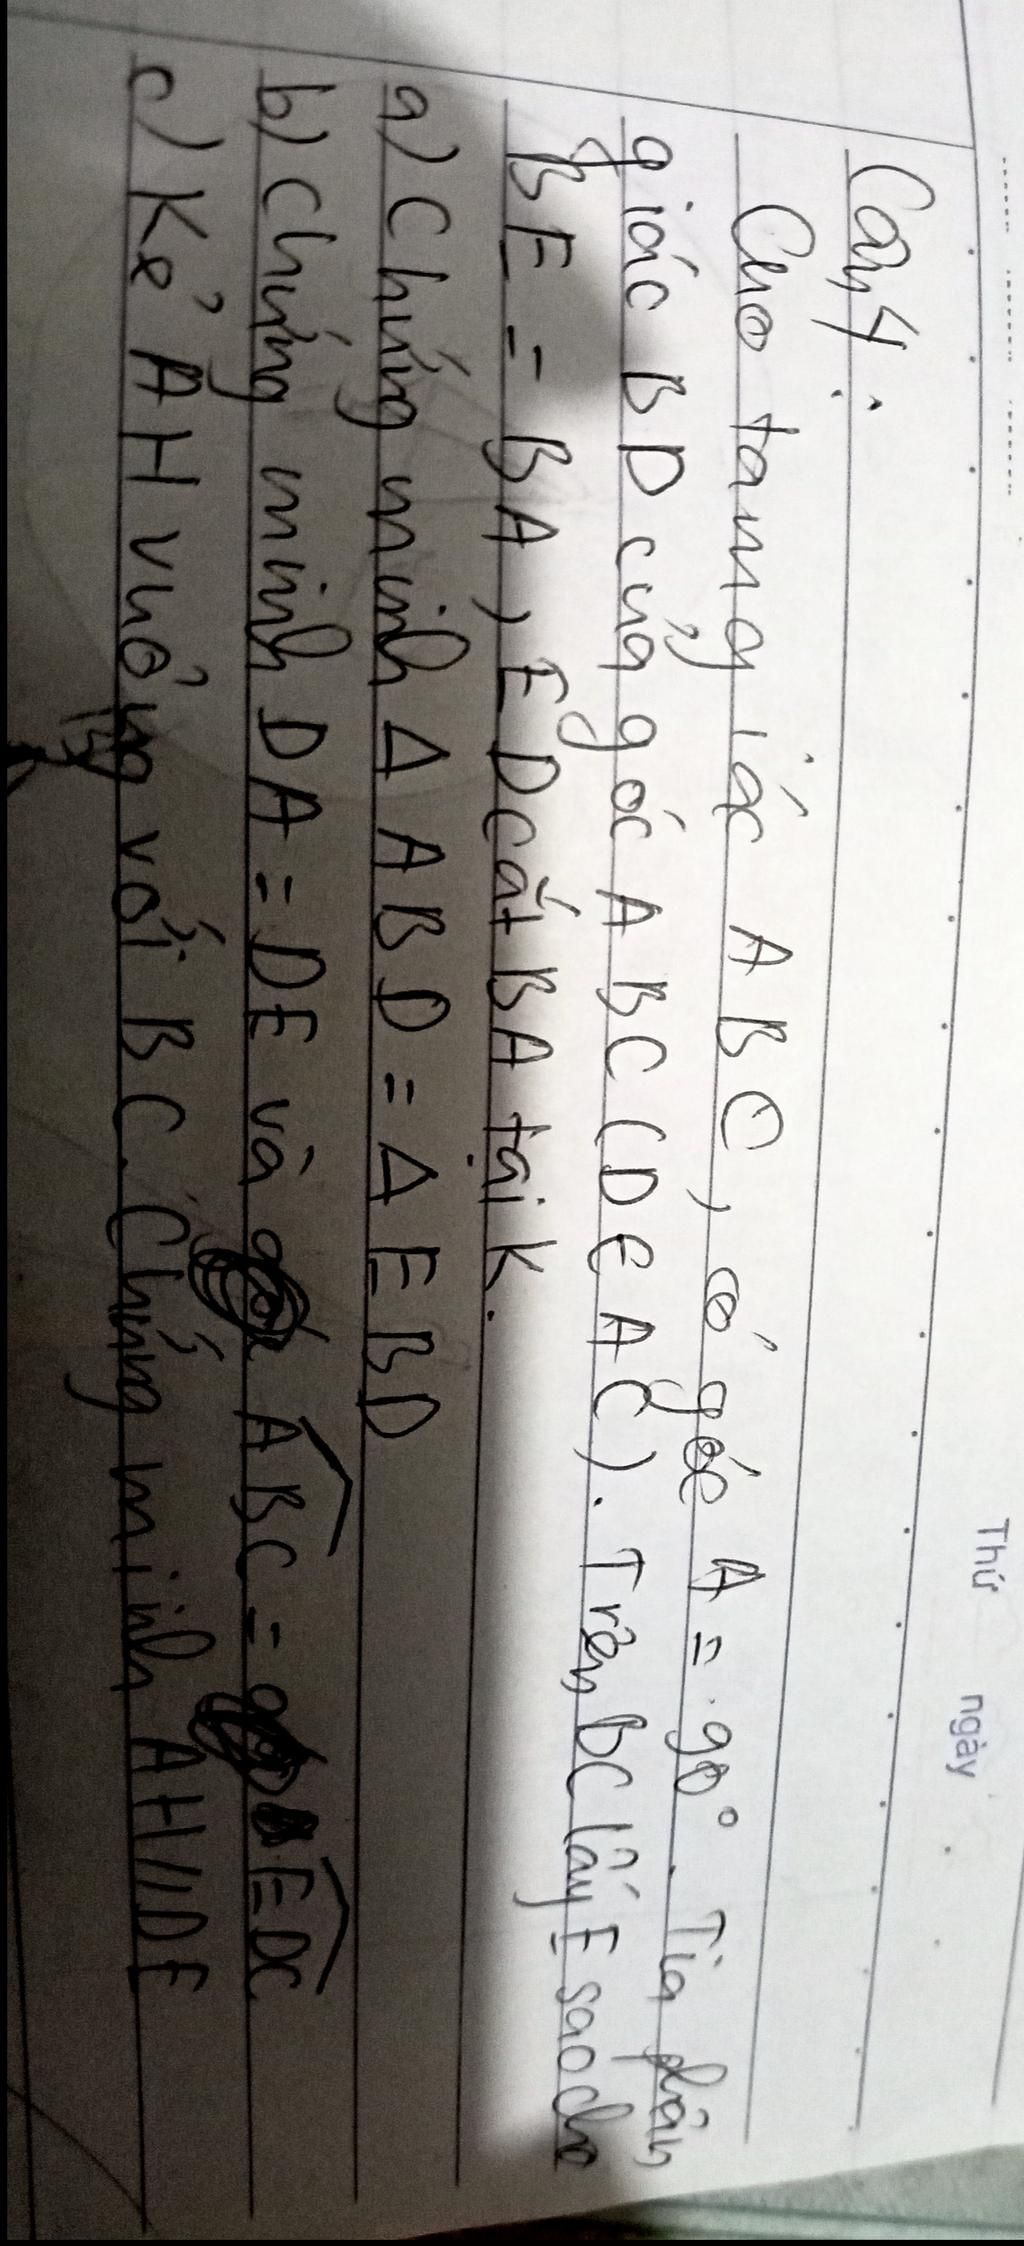 Thứ ngày
Câu 4:
Cho tam giác ABC, có góc A = 90°. Tia phân
giác BD của góc ABC (D ∈ AC). Trên BC lấy E sao cho
BE = BA, ED cắt BA tại K.
a) Chứng minh Δ ABD = Δ EBD
b) Chứng minh DA = DE và ABC = EDC
c) Kẻ AH vuông với BC. Chứng minh AH // DE